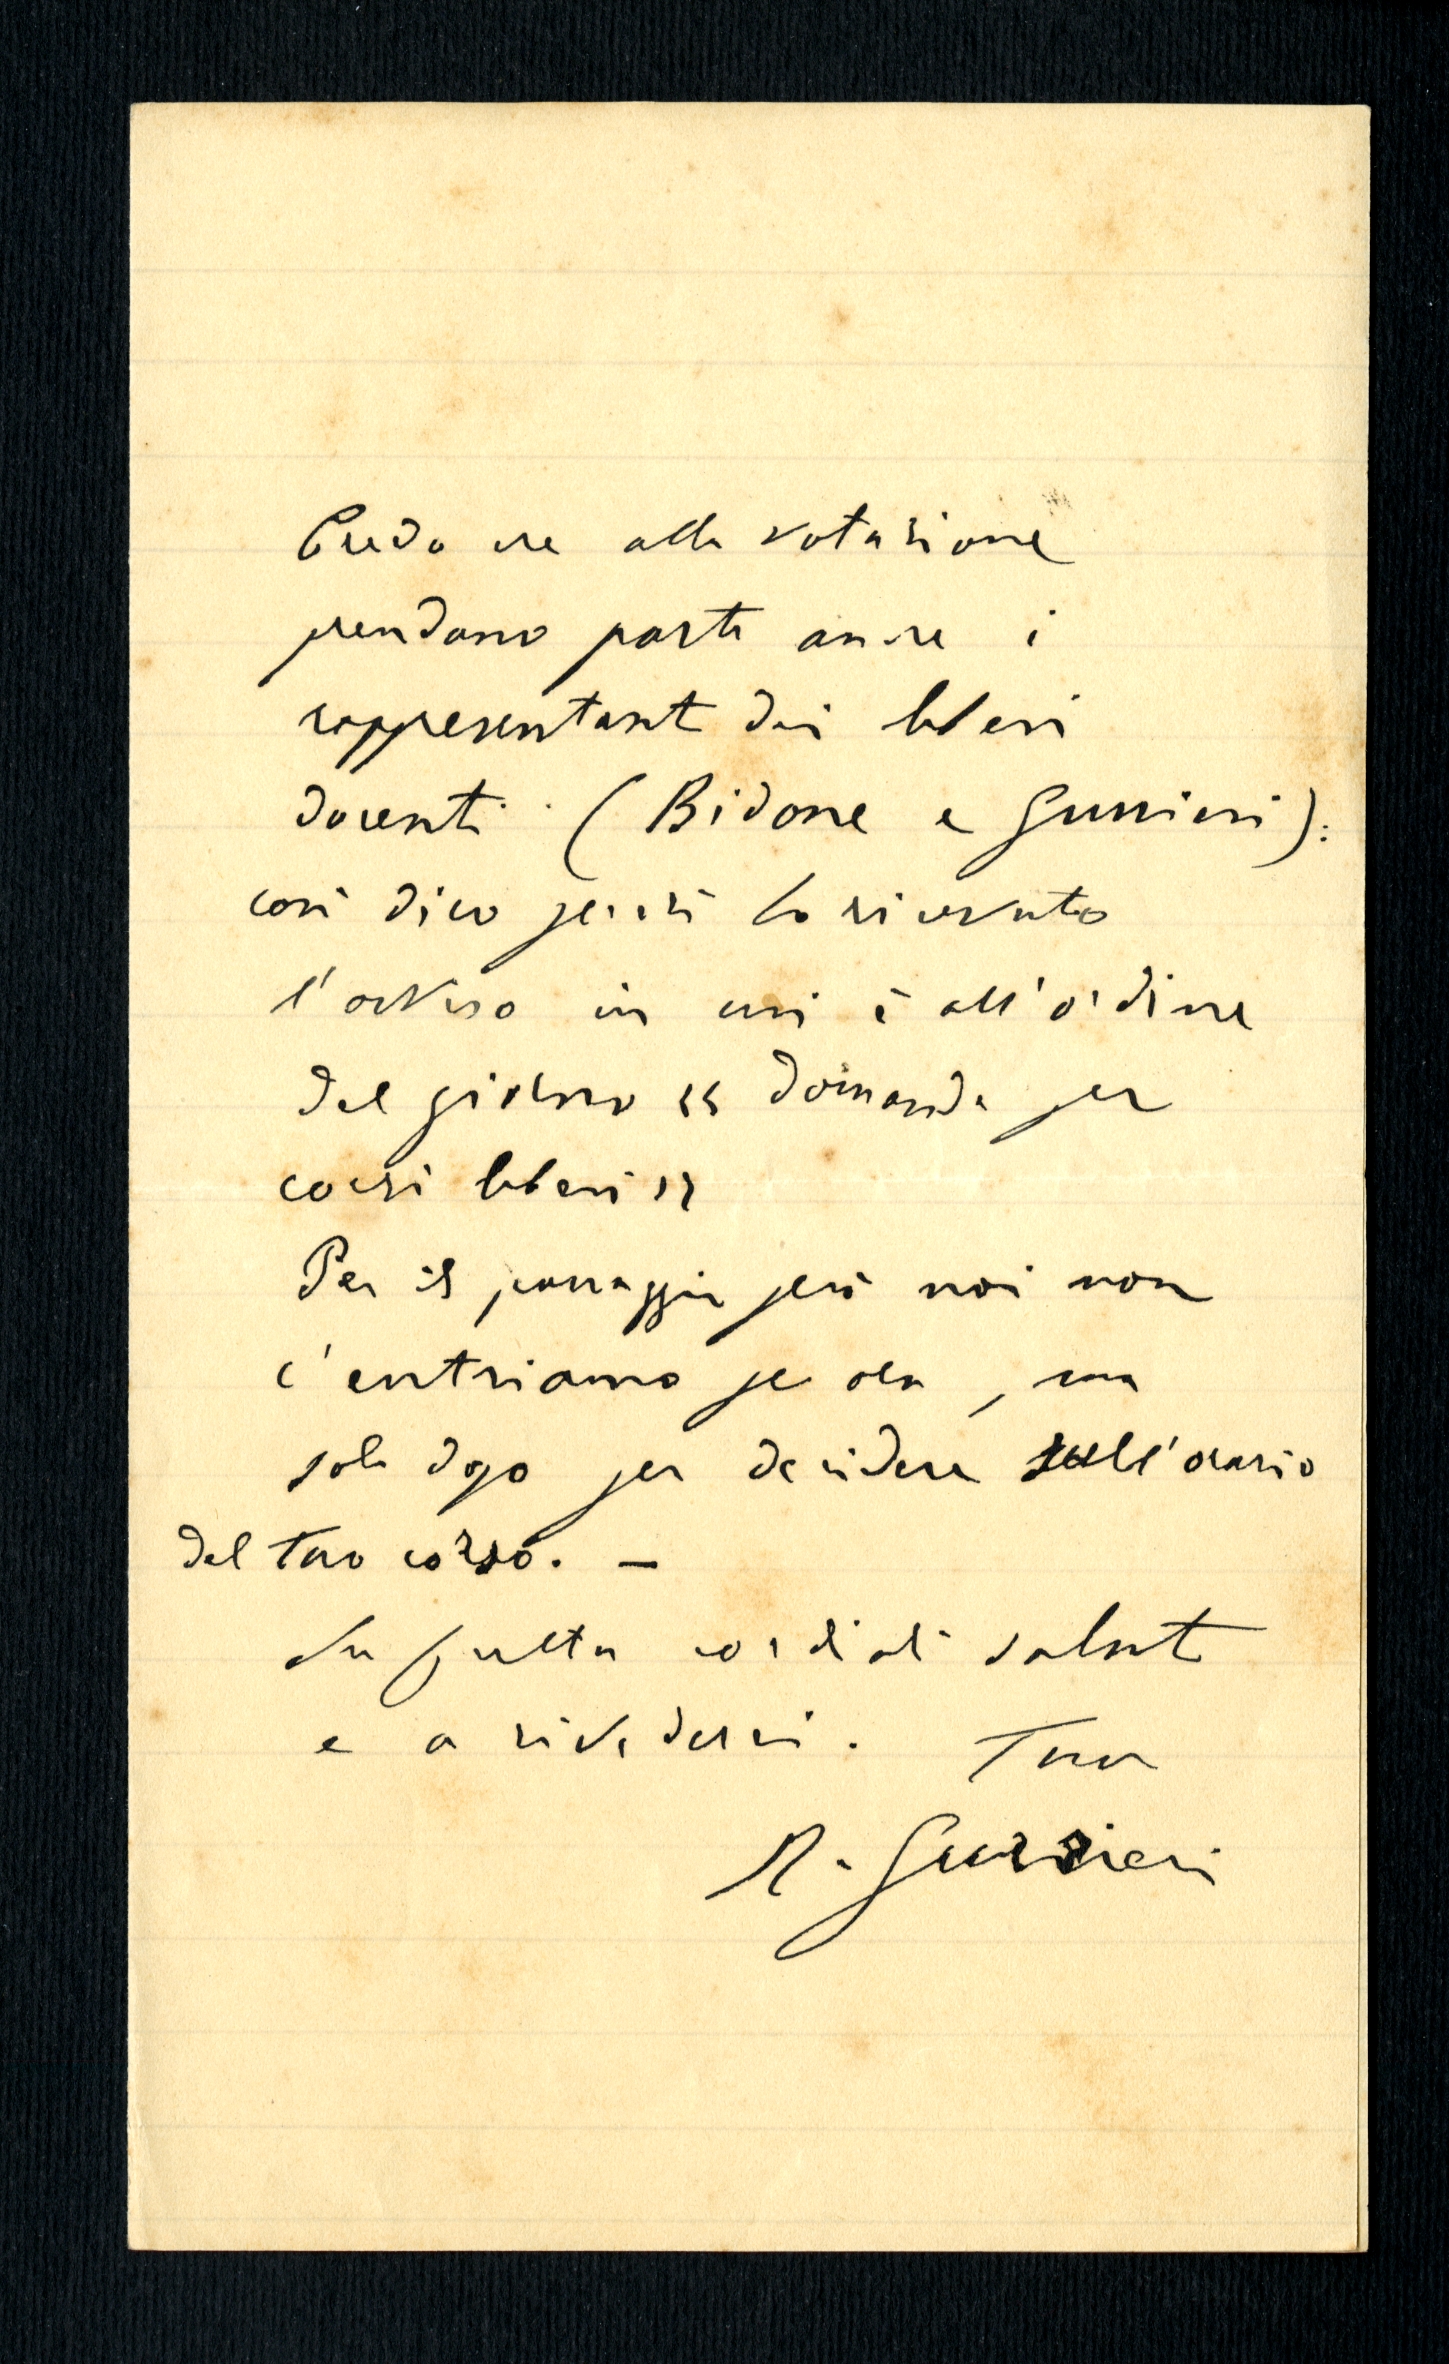 Credo che alla votazione
prendano parte anche i
rappresentanti dei liberi
docenti. (Bidone e Gurrieri):
così dico perché ho ricevuto
l'avviso in cui è all'ordine
del giorno "Domanda per
corsi liberi"
Per il passaggio però noi non
c'entriamo per ora, ma
solo dopo per decidere sull'orario
del tuo corso. —
In fretta cordiali saluti
e a rivederci. Tuo
R. Gurrieri